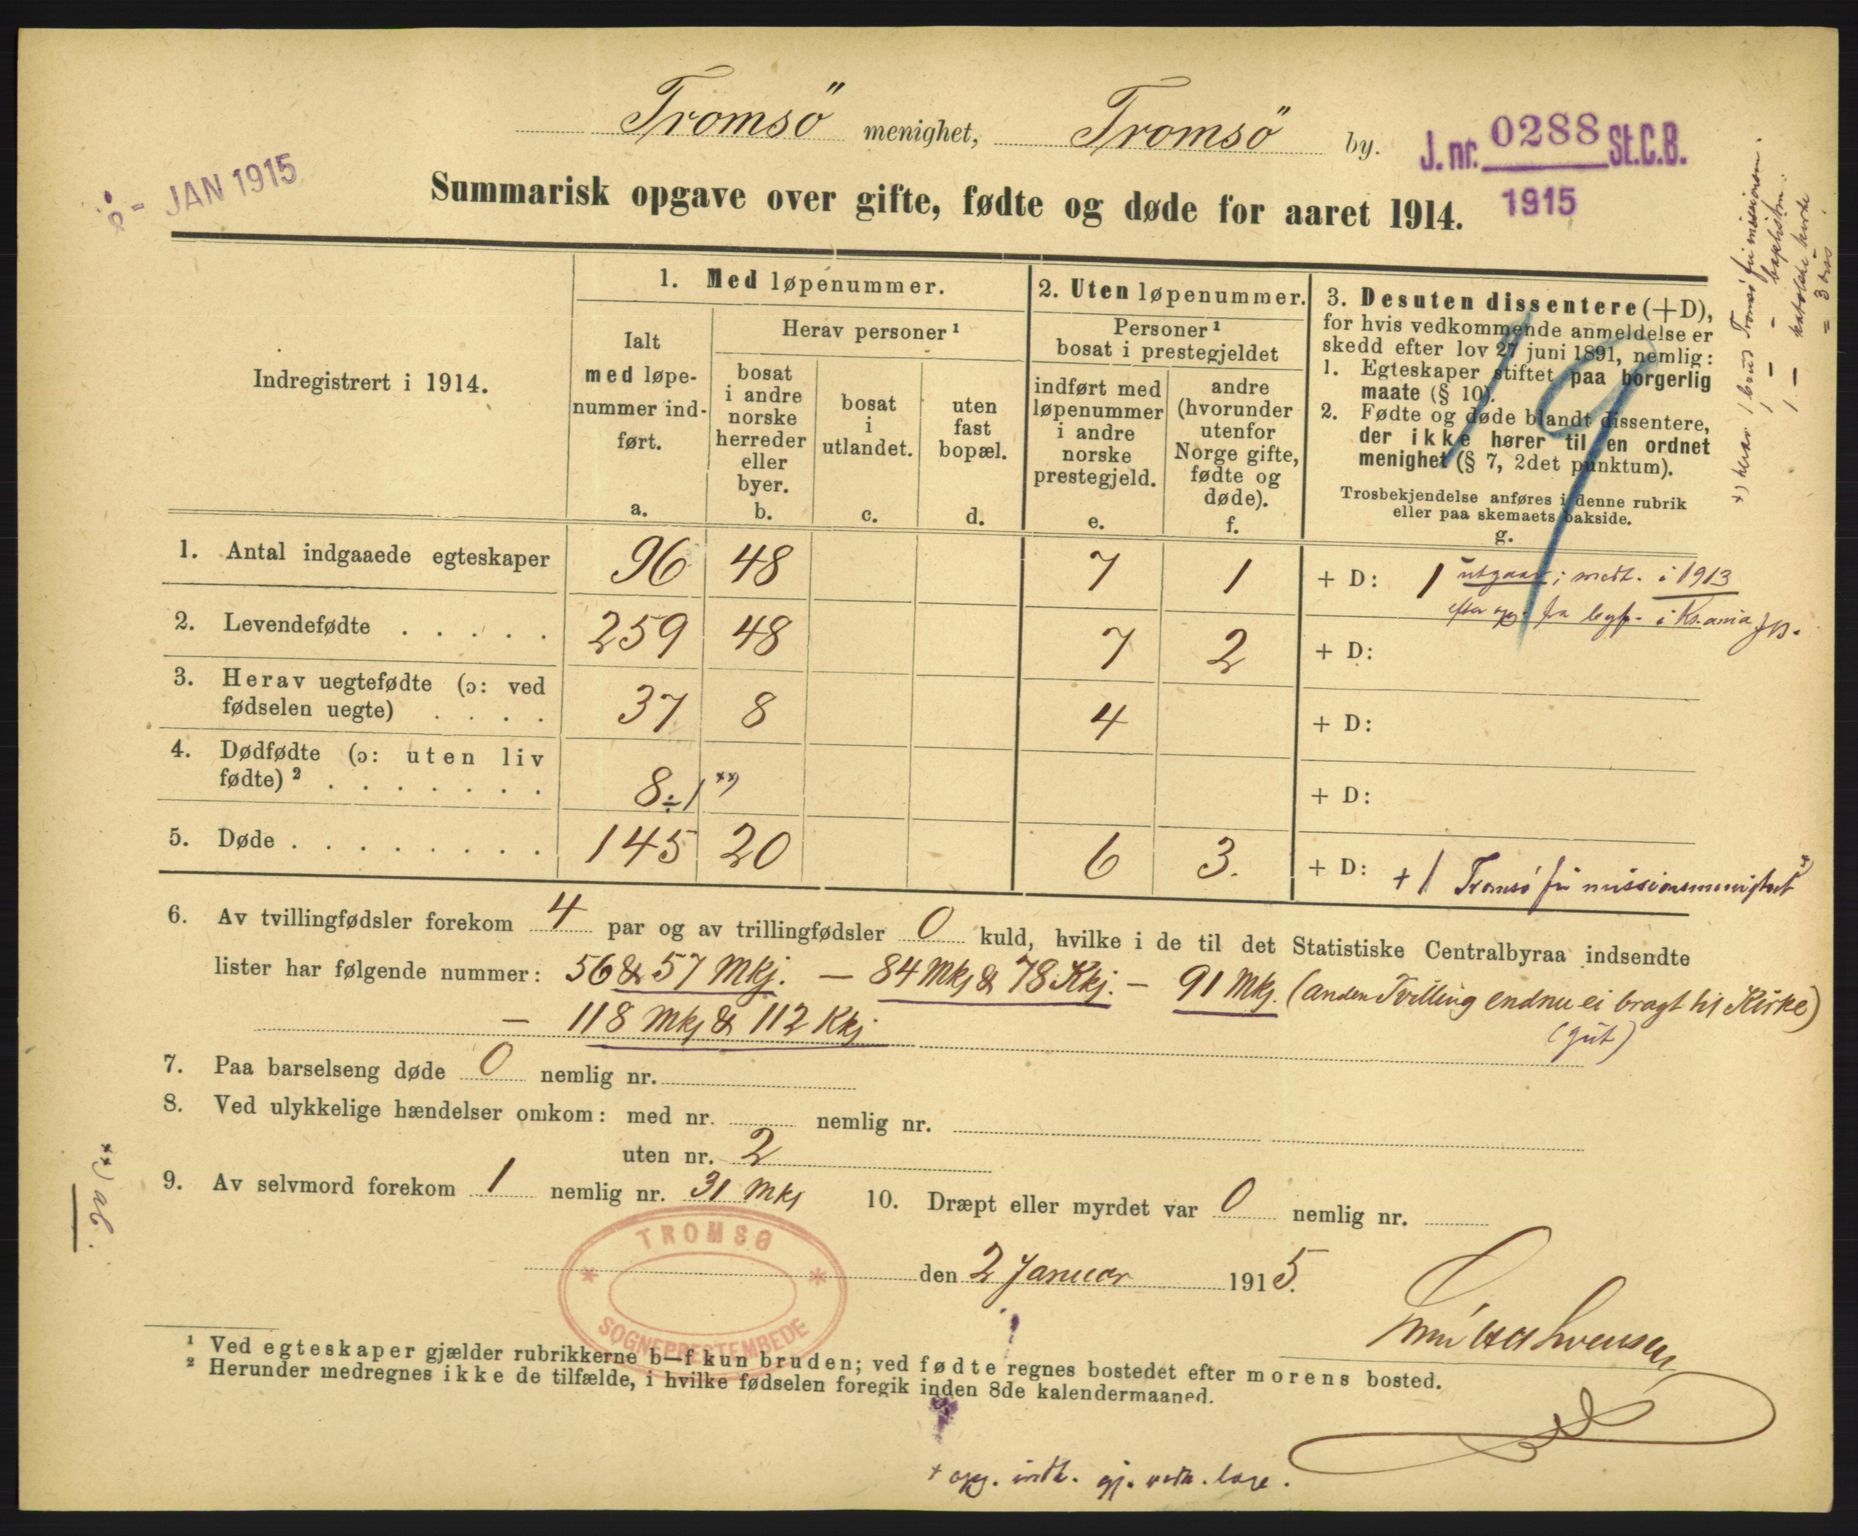 Tromsö menighet, Tromsö by.
J. nr. 0288 St.C.B.
1915
- JAN 1915
Summarisk opgave over gifte, fødte og døde for aaret 1914.
Indregistrert i 1914.
1. Med løpenummer.
Ialt
med løpe-
nummer ind-
ført.
a.
Herav personer ¹
bosat
i andre
norske
herreder
eller
byer.
b.
bosat
i
utlandet.
c.
uten
fast
bopæl.
d.
2. Uten løpenummer.
Personer ¹
bosat i prestegjeldet
indført med
løpenummer
i andre
norske
prestegjeld.
e.
andre
(hvorunder
utenfor
Norge gifte,
fødte og
døde).
f.
3. Desuten dissentere (+D),
for hvis vedkommende anmeldelse er
skedd efter lov 27 juni 1891, nemlig:
1. Egteskaper stiftet paa borgerlig
maate (§ 10).
2. Fødte og døde blandt dissentere,
der ikke hører til en ordnet
menighet (§ 7, 2det punktum).
Trosbekjendelse anføres i denne rubrik
eller paa skemaets bakside.
g.
19
1. Antal indgaaede egteskaper 96 48 7 1 + D: 1 utgaar; medt. i 1913
i Kr.ania
2. Levendefødte . . . . . 259 48 7 2 + D:
3. Herav uegtefødte (ɔ: ved
fødselen uegte) . . . . 37 8 4 + D:
4. Dødfødte (ɔ: uten liv
fødte) ² . . . . . . . 8 ÷ 1 **) + D:
5. Døde . . . . . . . . 145 20 6 3. + D: + 1 Tromsö fri missionsmenighet *)
6. Av tvillingfødsler forekom 4 par og av trillingfødsler 0 kuld, hvilke i de til det Statistiske Centralbyraa indsendte
lister har følgende nummer: 56 & 57 Mkj. — 84 Mkj & 78 Kkj. — 91 Mkj. (anden Tvilling endnu ei bragt til Kirke)
— 118 Mkj & 112 Kkj (gut)
7. Paa barselseng døde 0 nemlig nr.
8. Ved ulykkelige hændelser omkom: med nr. nemlig nr.
uten nr. 2
9. Av selvmord forekom 1 nemlig nr. 31 Mkj 10. Dræpt eller myrdet var 0 nemlig nr.
TROMSØ
SOGNEPRESTEMBEDE
den 2 Januar 1915.
¹ Ved egteskaper gjælder rubrikkerne b—f kun bruden; ved fødte regnes bostedet efter morens bosted.
² Herunder medregnes ikke de tilfælde, i hvilke fødselen foregik inden 8de kalendermaaned.
**) ab.
*) herav 1 hos Tromsö fri mission.
1 — baptistm.
1 — katolske kirke
= 3